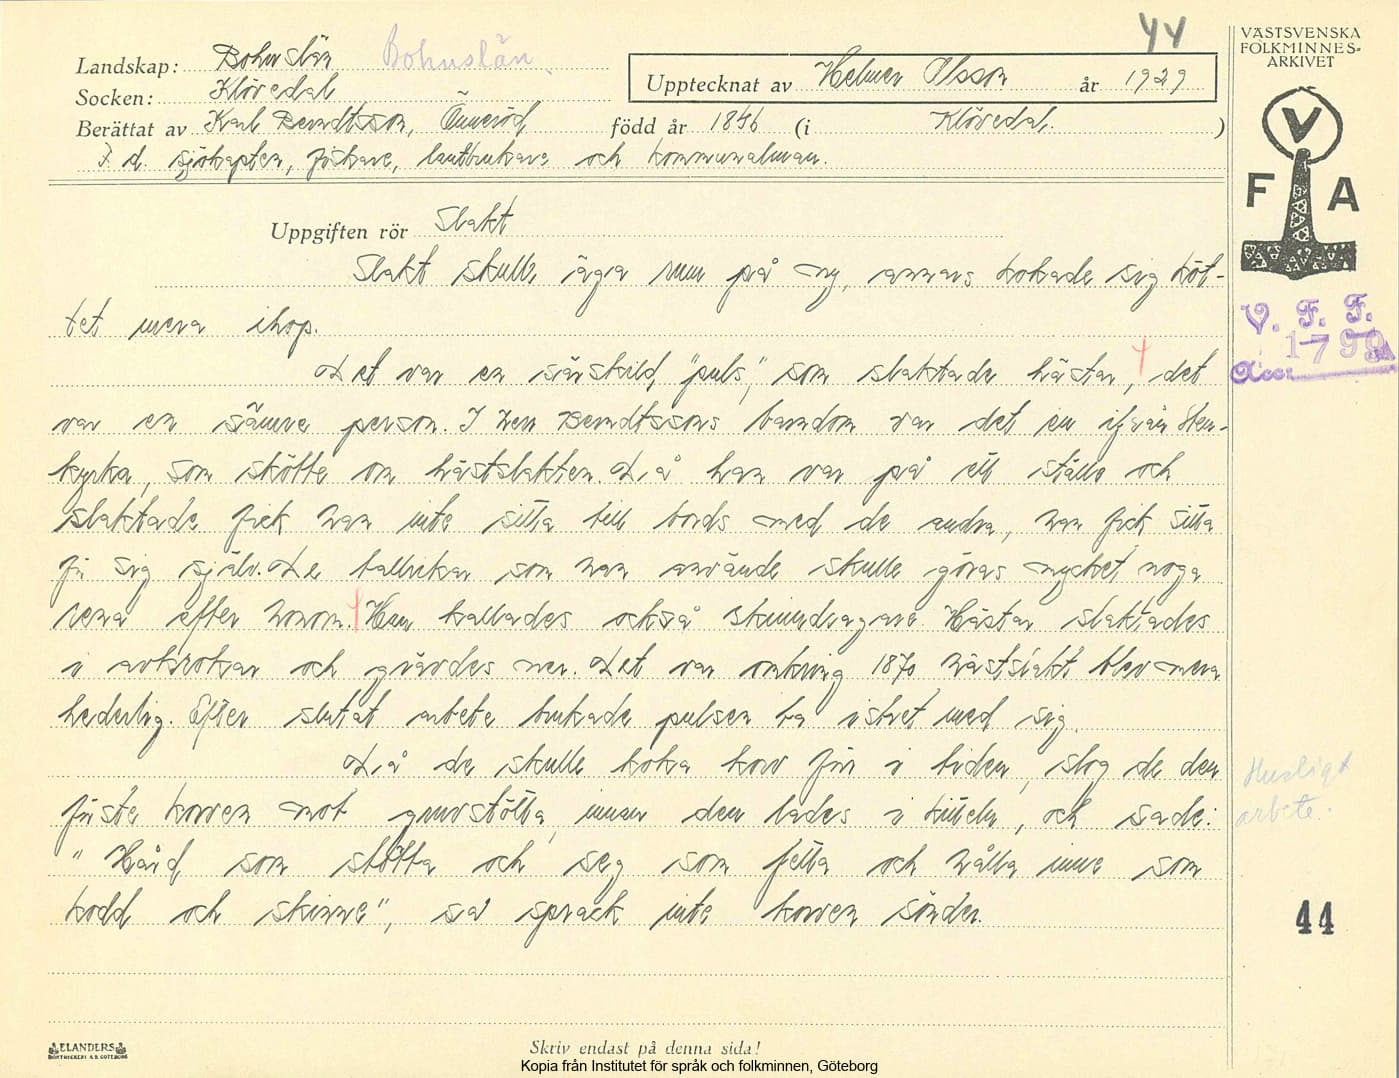 44
VÄSTSVENSKA
FOLKMINNES-
ARKIVET
Landskap: Bohuslän Bohuslän
Upptecknat av Helmer Olsson år 1929
Socken: Klövedal
Berättat av Karl Berndtsson, Önneröd, född år 1846 (i Klövedal. )
F. d. sjökapten, fiskare, lantbrukare och kommunalman.
V
F A
Uppgiften rör Slakt
Slakt skulle äga rum på ny, annars kokade sig köt-
tet mera ihop.
V. F. F.
1799
Acc:
Det var en särskild "puls", som slaktade hästar, det
var en sämre person. I herr Berndtssons barndom var det en ifrån Sten-
kyrka, som skötte om hästslakten. Då han var på ett ställe och
slaktade fick han inte sitta till bords med de andra, han fick sitta
för sig själv. De tallrikar som han använde skulle göras mycket noga
rena efter honom. Han kallades också skinndragare. Hästar slaktades
i avkrokar och grävdes ner. Det var omkring 1870 hästslakt blev mera
hederlig. Efter slutat arbete brukade pulsen ta istret med sig.
Då de skulle koka korv förr i tiden, slog de den
första korven mot gruvstötta, innan den lades i kitteln, och sade:
"Hård som stötta och seg som fetta och hålla inne som
kodd och skinne", så sprack inte korven sönder.
Husligt
arbete.
44
ELANDERS
BOKTRYCKERI A.B. GÖTEBORG
Skriv endast på denna sida!
Kopia från Institutet för språk och folkminnen, Göteborg